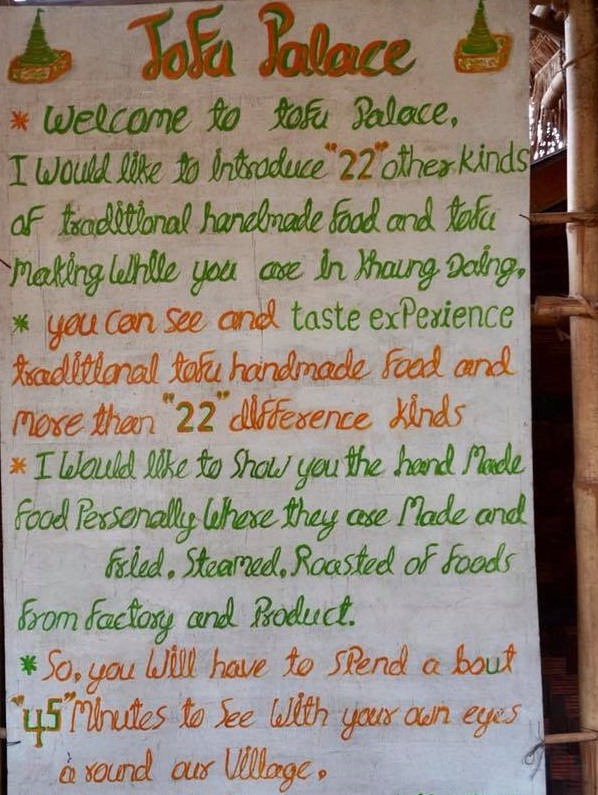 Tofu Palace
* Welcome to tofu Palace,
I Would like to introduce "22" other kinds
of traditional handmade food and tofu
making While you are in Khaung Daing.
* you can see and taste exPerience
traditional tofu handmade food and
more than "22" difference kinds
* I Would like to Show you the hand Made
food Personally Where they are Made and
fried, Steamed, Roasted of foods
from factory and Product.
* So, you Will have to SPend a bout
"45" Minutes to See With your own eyes
a round our Village.